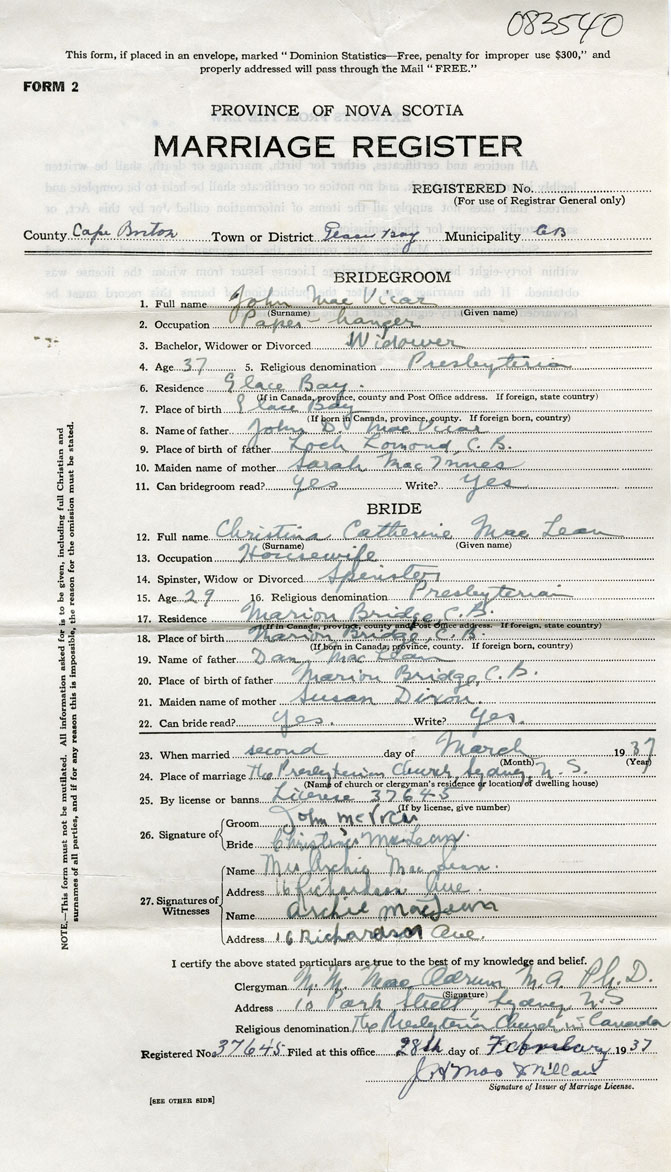 083540
This form, if placed in an envelope, marked "Dominion Statistics—Free, penalty for improper use $300," and
properly addressed will pass through the Mail "FREE."
FORM 2
PROVINCE OF NOVA SCOTIA
MARRIAGE REGISTER
REGISTERED No.
(For use of Registrar General only)
County Cape Breton Town or District Glace Bay Municipality C B
BRIDEGROOM
1. Full name John Mac Vicar
(Surname) (Given name)
2. Occupation Paper-hanger
3. Bachelor, Widower or Divorced Widower
4. Age 37 5. Religious denomination Presbyterian
6. Residence Glace Bay.
(If in Canada, province, county and Post Office address. If foreign, state country)
7. Place of birth Glace Bay
(If born in Canada, province, county. If foreign born, country)
8. Name of father John D. Mac Vicar
9. Place of birth of father Loch Lomond, C. B.
10. Maiden name of mother Sarah Mac Innes
11. Can bridegroom read? yes Write? Yes
BRIDE
12. Full name Christina Catherine Mac Lean
(Surname) (Given name)
13. Occupation Housewife
14. Spinster, Widow or Divorced Spinster
15. Age 29 16. Religious denomination Presbyterian
17. Residence Marion Bridge, C. B.
(If in Canada, province, county and Post Office address. If foreign, state country)
18. Place of birth Marion Bridge, C. B.
(If born in Canada, province, county. If foreign born, country)
19. Name of father Dan Mac Lean
20. Place of birth of father Marion Bridge, C. B.
21. Maiden name of mother Susan Dixon
22. Can bride read? Yes. Write? Yes.
23. When married second day of March 1937
(Month) (Year)
24. Place of marriage The Presbyterian Church, Sydney, N. S.
(Name of church or clergyman's residence or location of dwelling house)
25. By license or banns License 37645
(If by license, give number)
26. Signature of
Groom John McVicar
Bride Christina MacLean.
27. Signatures of Witnesses
Name Mrs Archie MacLean.
Address 16 Richardson Ave.
Name Archie MacLean
Address 16 Richardson Ave.
I certify the above stated particulars are true to the best of my knowledge and belief.
Clergyman Mac M. A. Ph. D.
(Signature)
Address 10 Park Street, Sydney, N. S
Religious denomination The Presbyterian Church in Canada
Registered No. 37645 Filed at this office 28th day of February 1937
J. H. MacMillan
Signature of Issuer of Marriage License.
[SEE OTHER SIDE]
NOTE.—This form must not be mutilated. All information asked for is to be given, including full Christian and
surnames of all parties, and if for any reason this is impossible, the reason for the omission must be stated.